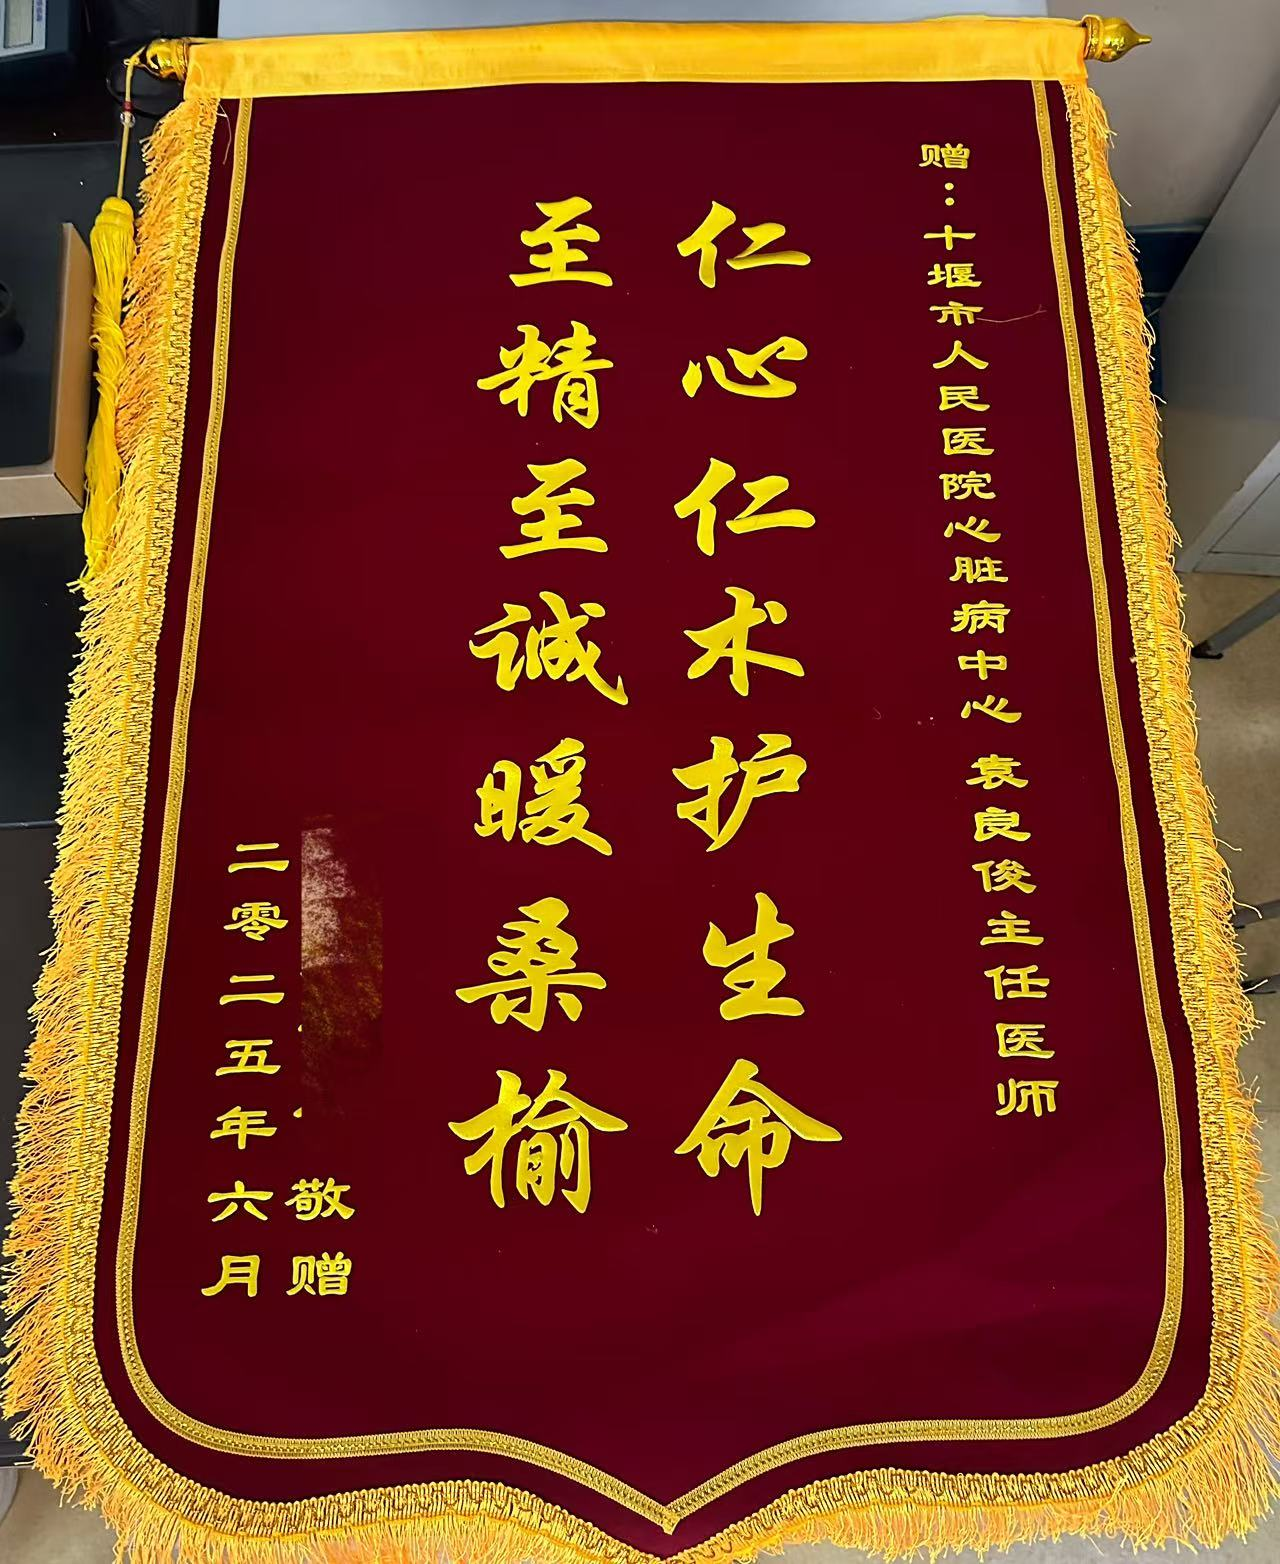 赠：十堰市人民医院心脏病中心 袁良俊主任医师
仁心仁术护生命
至精至诚暖桑榆
敬赠
二零二五年六月